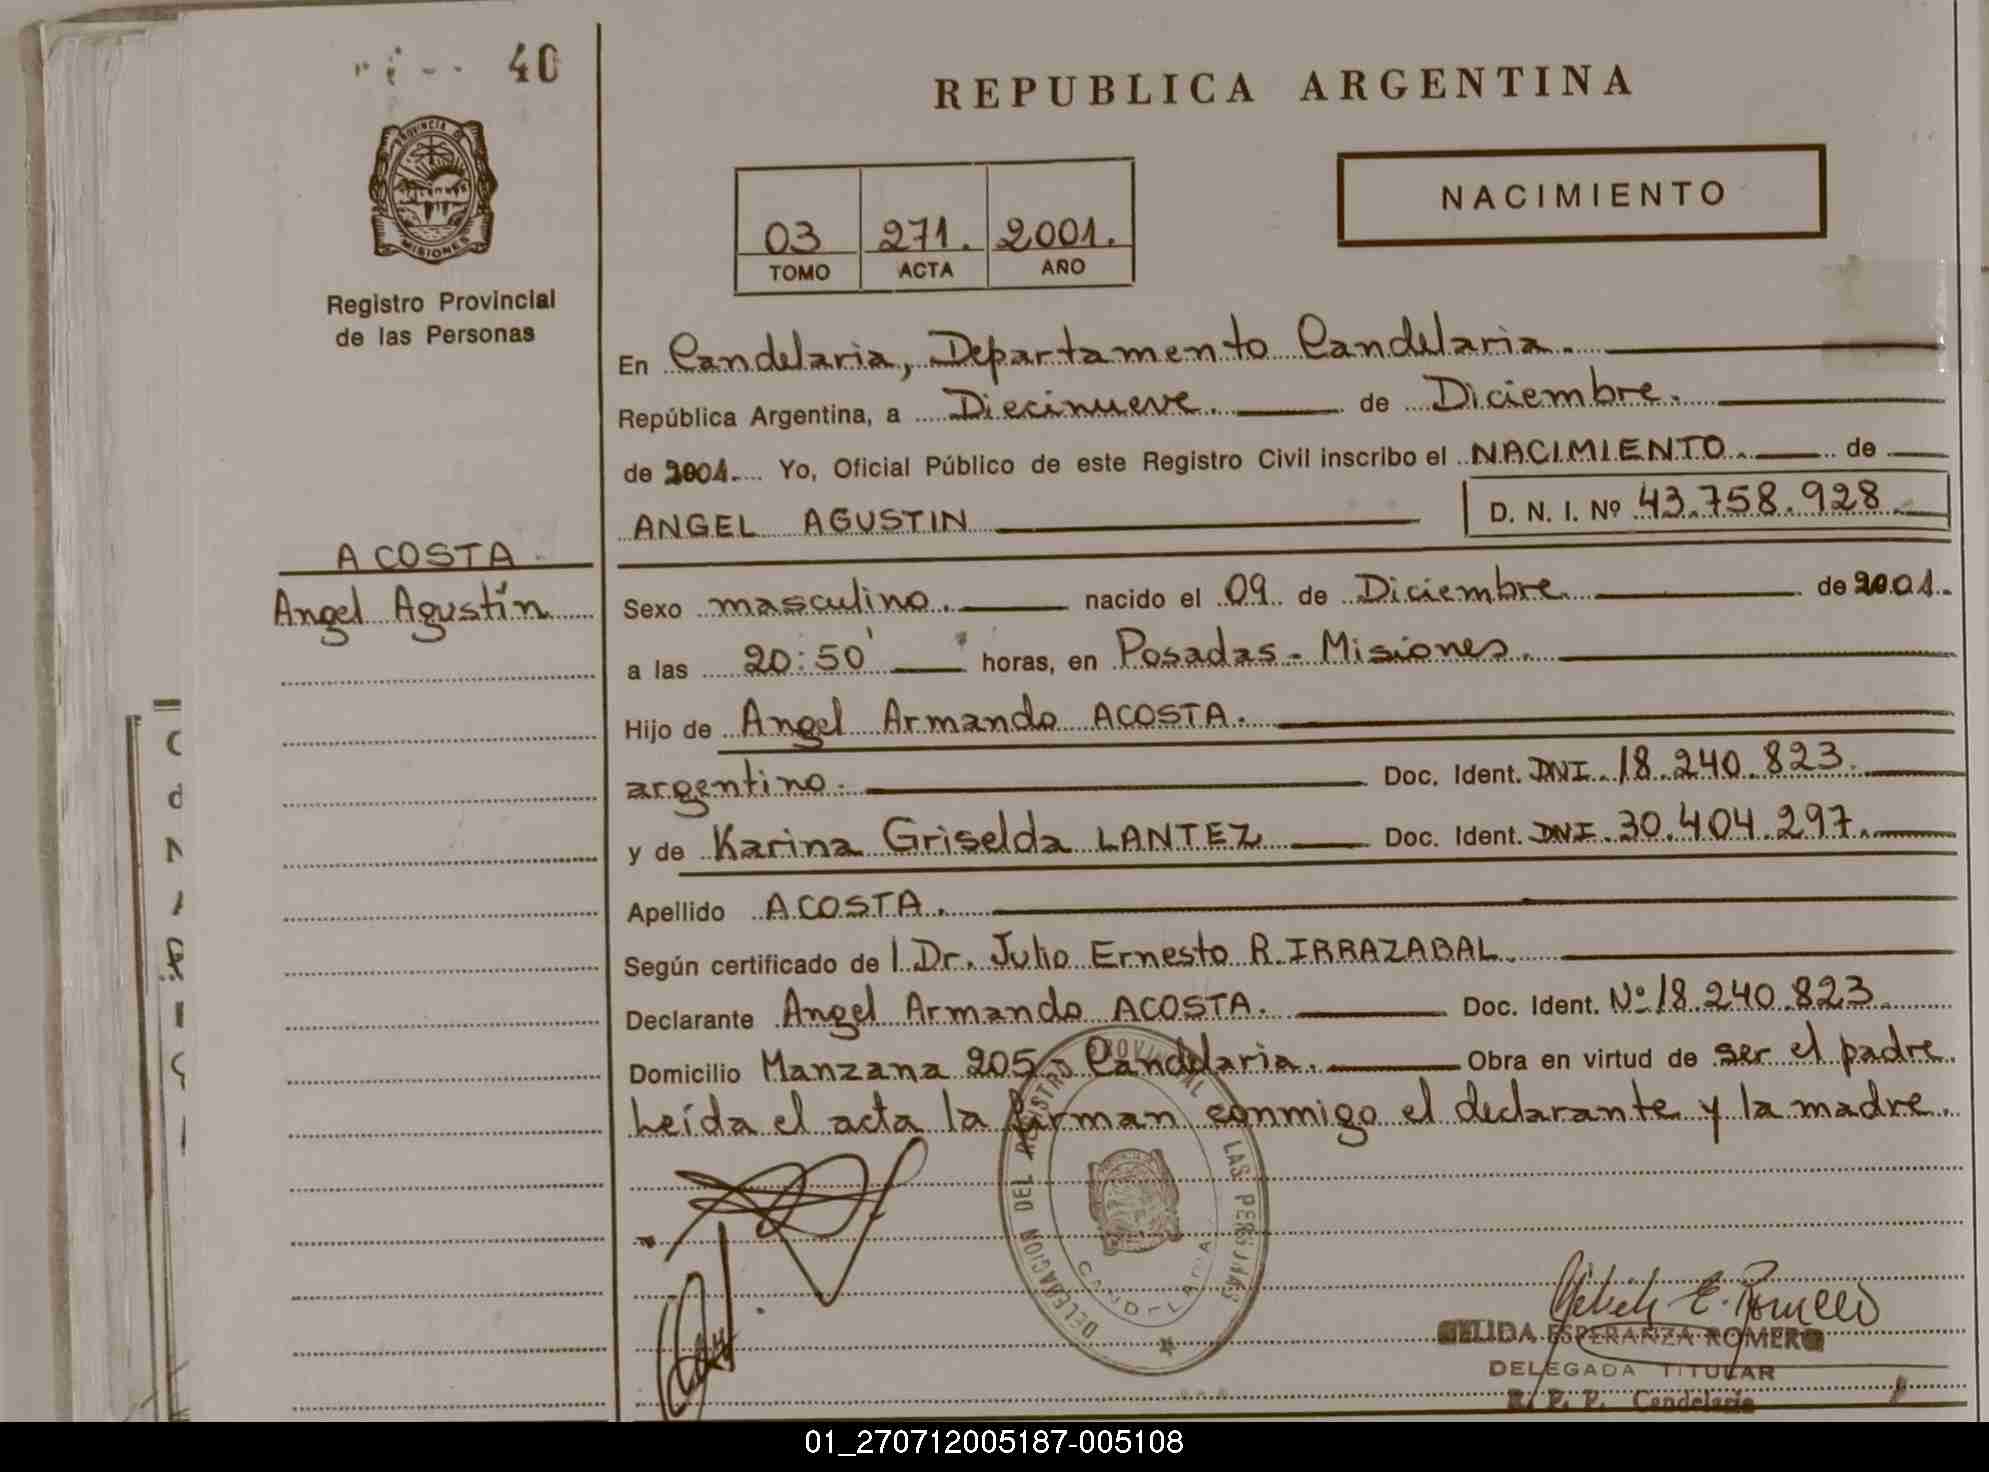 40
PROVINCIA DE
MISIONES
Registro Provincial
de las Personas
ACOSTA
Angel Agustín
REPUBLICA ARGENTINA
NACIMIENTO
03 271. 2001.
TOMO ACTA AÑO
En Candelaria, Departamento Candelaria.
República Argentina, a Diecinueve. de Diciembre.
de 2001. Yo, Oficial Público de este Registro Civil inscribo el NACIMIENTO. de
ANGEL AGUSTIN D. N. I. Nº 43.758.928
Sexo masculino. nacido el 09 de Diciembre de 2001.
a las 20:50' horas, en Posadas - Misiones.
Hijo de Angel Armando ACOSTA.
argentino. Doc. Ident. DNI. 18.240.823.
y de Karina Griselda LANTEZ Doc. Ident. DNI. 30.404.297.
Apellido ACOSTA.
Según certificado de l Dr. Julio Ernesto R. IRRAZABAL.
Declarante Angel Armando ACOSTA. Doc. Ident. Nº 18.240.823
Domicilio Manzana 205 Candelaria. Obra en virtud de ser el padre.
Leída el acta la firman conmigo el declarante y la madre.
DELEGACION DEL REGISTRO PROVINCIAL LAS PERSONAS
CANDELARIA
NELIDA ESPERANZA ROMERO
DELEGADA TITULAR
R. P. P. Candelaria
01_270712005187-005108